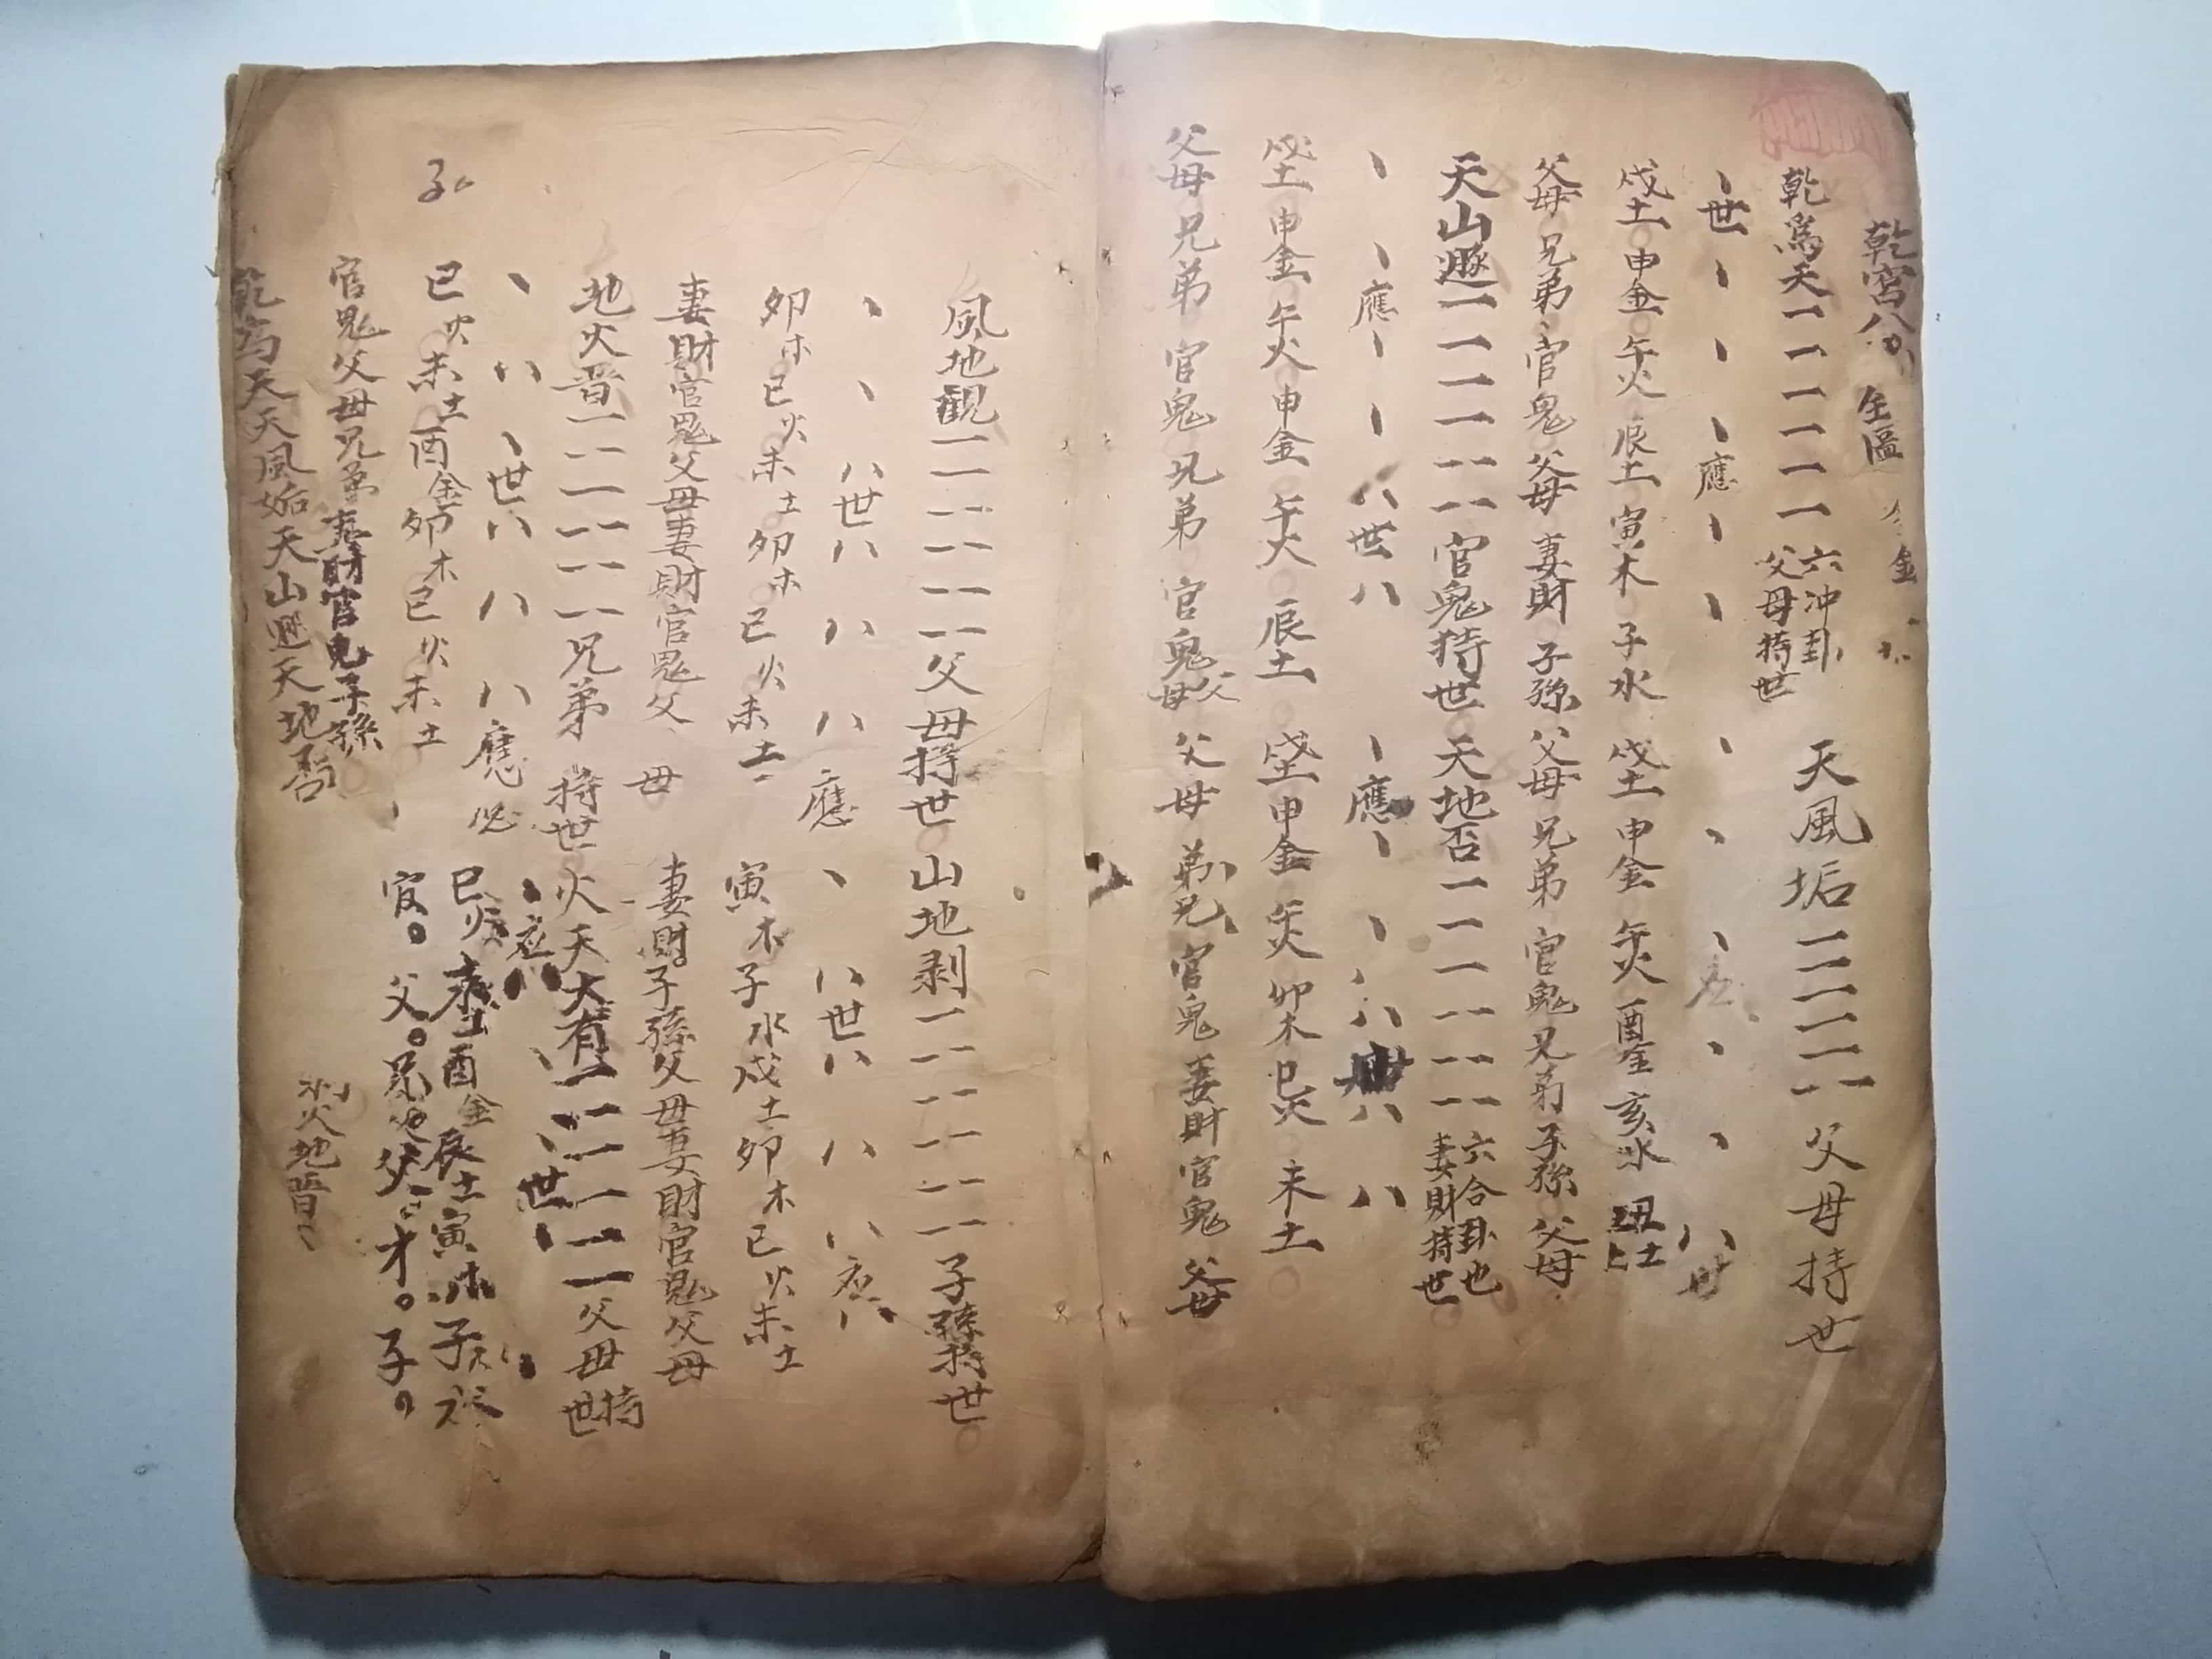 乾宮八
金
乾為天 一一一一一一 六冲卦
父母持世
天風垢 一一一一一 -- 父母持世
丶世丶丶丶應丶丶
丶丶丶丶丶八世
戍土 申金 午火 辰土 寅木 子水
戍土 申金 午火 酉金 亥水 丑土
父母 兄弟 官鬼 父母 妻財 子孫
父母 兄弟 官鬼 兄弟 子孫 父母
天山遯 一一一一 -- -- 官鬼持世
天地否 一一一 -- -- -- 六合卦也
妻財持世
丶丶應丶丶八世八
丶應丶丶八八八
戍土 申金 午火 申金 午火 辰土
戍土 申金 午火 卯木 巳火 未土
父母 兄弟 官鬼 兄弟 官鬼 父母
父母 弟兄 官鬼 妻財 官鬼 父母
風地觀 一一 -- -- -- -- 父母持世
山地剥 一 -- -- -- -- -- 子孫持世
丶丶八世八八八應
丶八世八八八应八
卯木 巳火 未土 卯木 巳火 未土
寅木 子水 戍土 卯木 巳火 未土
妻財 官鬼 父母 妻財 官鬼 父母
妻財 子孫 父母 妻財 官鬼 父母
地火晋 一 -- 一 -- -- -- 兄弟持世
火天大有 一 -- 一一一一 父母持世
丶八丶世八八八應
丶应八丶丶世丶丶
巳火 未土 酉金 卯木 巳火 未土
巳火 未土 酉金 辰土 寅木 子水
官鬼 父母 兄弟 妻財 官鬼 子孫
官。父。兄弟 父。才。子。
乾為天 天風姤 天山遯 天地否
火地晋